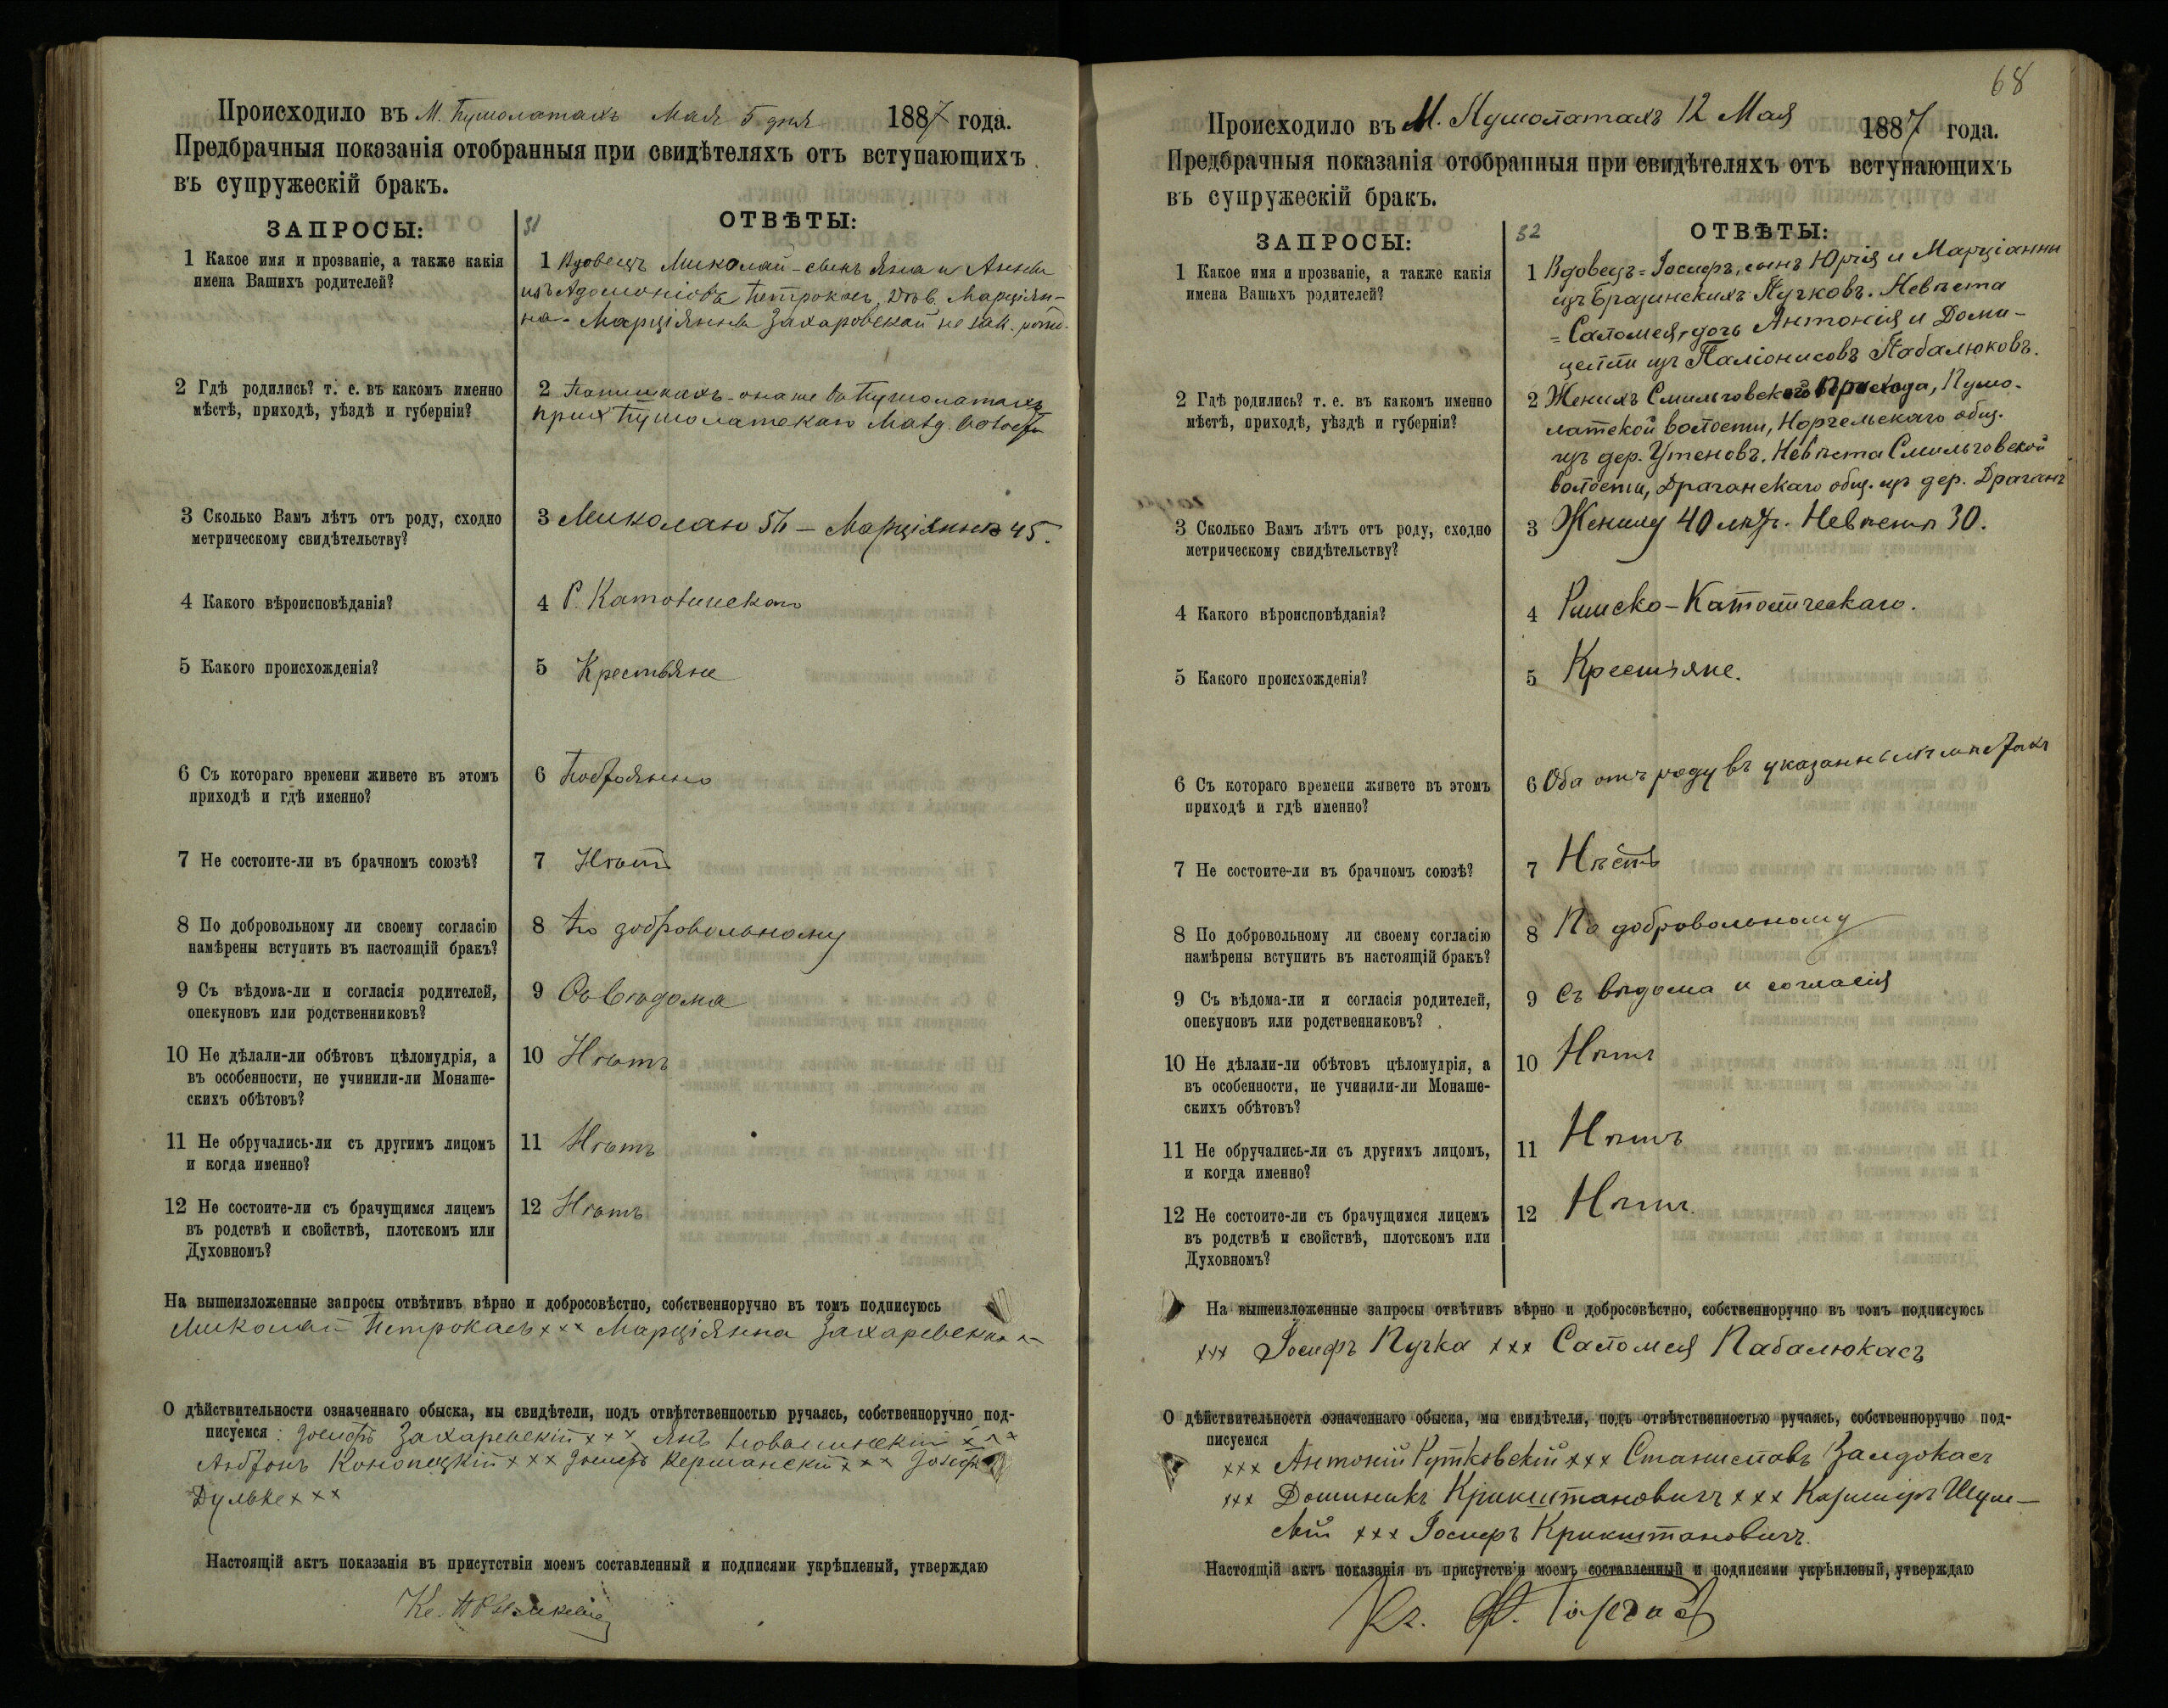 Происходило въ М. Пумолатахъ Мая 5 дня 1887 года.
Предбрачныя показанія отобранныя при свидѣтеляхъ отъ вступающихъ
въ супружескій бракъ.
ЗАПРОСЫ:
31
ОТВѢТЫ:
1 Какое имя и прозваніе, а также какія
имена Вашихъ родителей?
1 Вдовецъ Миколай - сынъ Яна и Анны
изъ Петрокасъ, Марціян-
на - Марціянны Захаровской не зак.
2 Гдѣ родились? т. е. въ какомъ именно
мѣстѣ, приходѣ, уѣздѣ и губерніи?
2 она же въ Пумолатахъ
прих Пумолатскаго
3 Сколько Вамъ лѣтъ отъ роду, сходно
метрическому свидѣтельству?
3 Миколаю 56 — Марціяннѣ 45.
4 Какого вѣроисповѣданія?
4 Р. Католическаго
5 Какого происхожденія?
5 Крестьяне
6 Съ котораго времени живете въ этомъ
приходѣ и гдѣ именно?
6
7 Не состоите-ли въ брачномъ союзѣ?
7 Нѣтъ
8 По добровольному ли своему согласію
намѣрены вступить въ настоящій бракъ?
8 По добровольному
9 Съ вѣдома-ли и согласія родителей,
опекуновъ или родственниковъ?
9 Съ вѣдома
10 Не дѣлали-ли обѣтовъ цѣломудрія, а
въ особенности, не учинили-ли Монаше-
скихъ обѣтовъ?
10 Нѣтъ
11 Не обручались-ли съ другимъ лицомъ
и когда именно?
11 Нѣтъ
12 Не состоите-ли съ брачущимся лицемъ
въ родствѣ и свойствѣ, плотскомъ или
Духовномъ?
12 Нѣтъ
На вышеизложенные запросы отвѣтивъ вѣрно и добросовѣстно, собственноручно въ томъ подписуюсь
Миколай Петрокасъ xxx Марціянна Захаревская
О дѣйствительности означеннаго обыска, мы свидѣтели, подъ отвѣтственностью ручаясь, собственноручно под-
писуемся: Іосифъ Захаревскій xxx Янъ xxx
Конопецкій xxx Іосифъ Керманскій xxx Іосифъ
Дульке xxx
Настоящій актъ показанія въ присутствія моемъ составленный и подписями укрѣпленый, утверждаю
68
Происходило въ М. Пумолатахъ 12 Мая 1887 года.
Предбрачныя показанія отобранныя при свидѣтеляхъ отъ вступающихъ
въ супружескій бракъ.
ЗАПРОСЫ:
32
ОТВѢТЫ:
1 Какое имя и прозваніе, а также какія
имена Вашихъ родителей?
1 Вдовецъ = Іосифъ, сынъ Юрія и Марціанны
изъ Бразинскихъ Пучковъ. Невѣста
= Саломея, дочь Антонія и Доми-
целли изъ Паліонисовъ Пабалюковъ.
2 Гдѣ родились? т. е. въ какомъ именно
мѣстѣ, приходѣ, уѣздѣ и губерніи?
2 Женихъ Смильговскаго Прихода, Пумо-
латской волости, Норгельскаго общ.
изъ дер. Утеновъ. Невѣста Смильговской
волости, Драганскаго общ. изъ дер. Драганъ
3 Сколько Вамъ лѣтъ отъ роду, сходно
метрическому свидѣтельству?
3 Жениху 40 лѣтъ. Невѣстѣ 30.
4 Какого вѣроисповѣданія?
4 Римско-Католическаго.
5 Какого происхожденія?
5 Крестьяне.
6 Съ котораго времени живете въ этомъ
приходѣ и гдѣ именно?
6 Оба отъ роду въ указанныхъ мѣстахъ
7 Не состоите-ли въ брачномъ союзѣ?
7 Нѣтъ
8 По добровольному ли своему согласію
намѣрены вступить въ настоящій бракъ?
8 По добровольному
9 Съ вѣдома-ли и согласія родителей,
опекуновъ или родственниковъ?
9 Съ вѣдома и согласія
10 Не дѣлали-ли обѣтовъ цѣломудрія, а
въ особенности, не учинили-ли Монаше-
скихъ обѣтовъ?
10 Нѣтъ
11 Не обручались-ли съ другихъ лицомъ,
и когда именно?
11 Нѣтъ
12 Не состоите-ли съ брачущимся лицемъ
въ родствѣ и свойствѣ, плотскомъ или
Духовномъ?
12 Нѣтъ.
На вышеизложенные запросы отвѣтивъ вѣрно и добросовѣстно, собственноручно въ томъ подписуюсь
xxx Іосифъ Пучка xxx Саломея Пабалюкасъ
О дѣйствительности означеннаго обыска, мы свидѣтели, подъ отвѣтственностью ручаясь, собственноручно под-
писуемся
xxx Антоній Рутковскій xxx Станиславъ Валдокасъ
xxx Доминикъ Крикштановичъ xxx Казиміръ Шум-
скій xxx Іосифъ Крикштановичъ.
Настоящій актъ показанія въ присутствіи моемъ составленный и подписями укрѣпленый, утверждаю